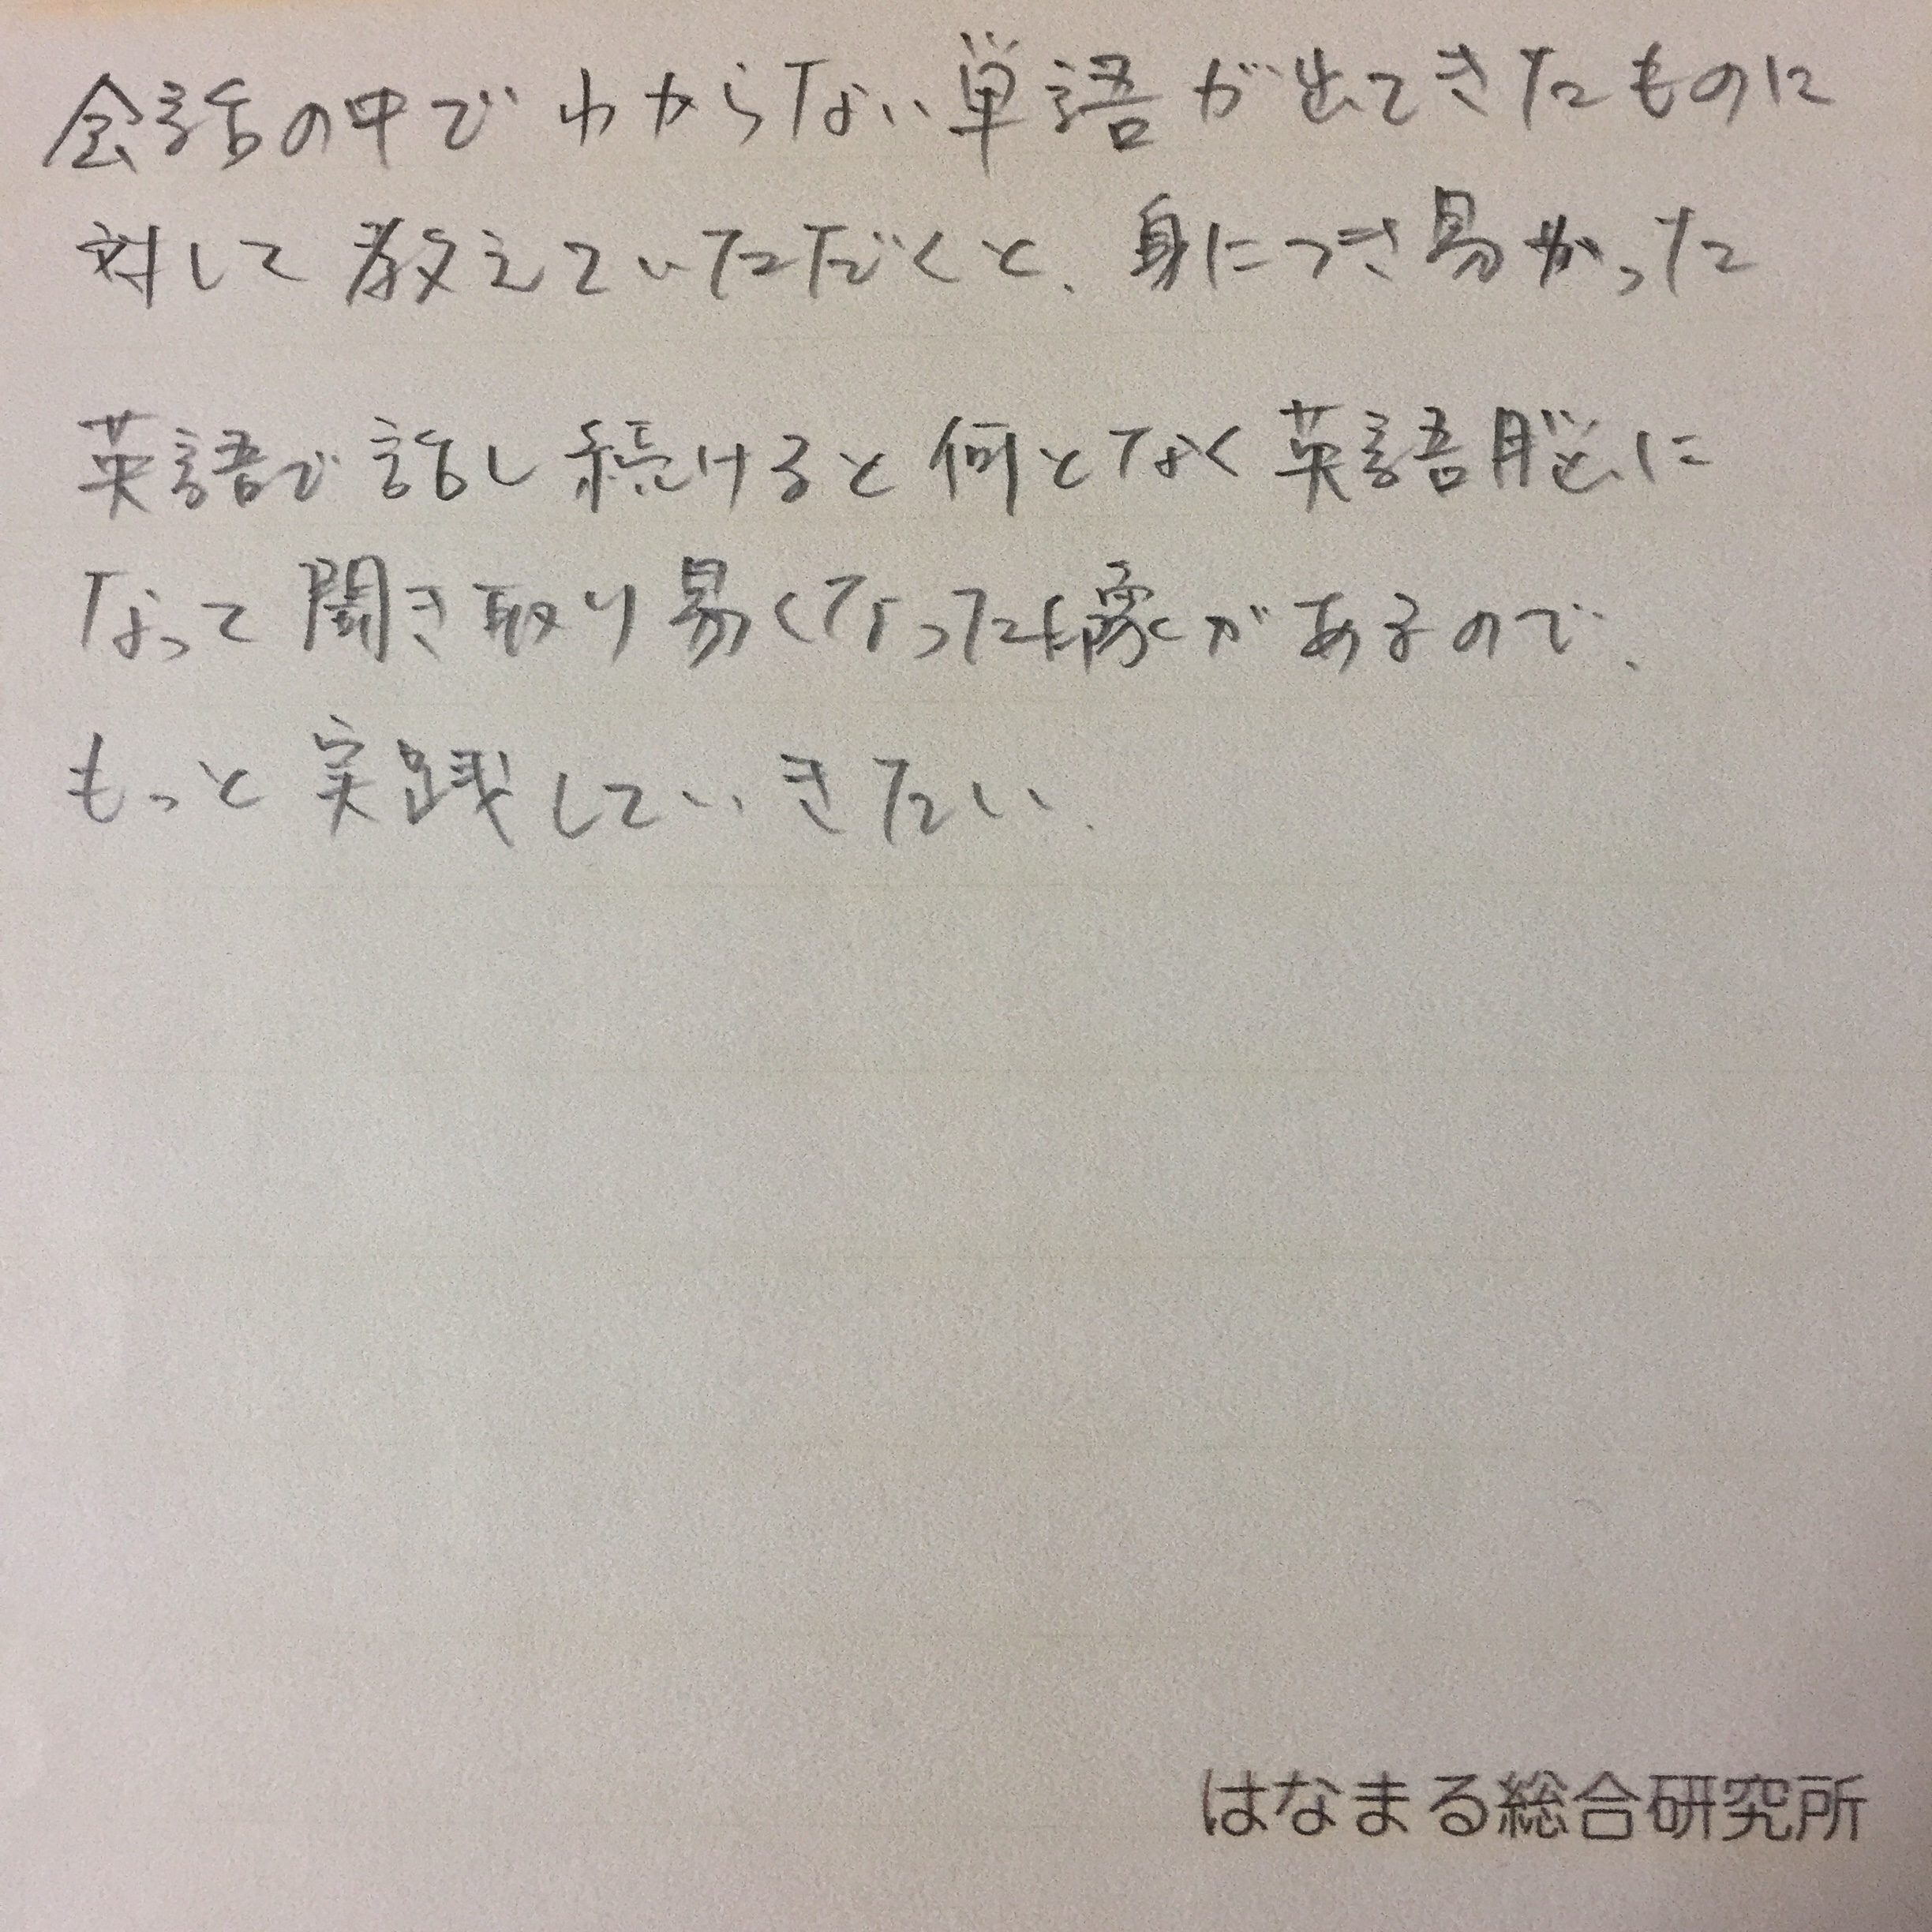 会話の中でわからない単語が出てきたものに
対して教えていただくと、身につき易かった
英語で話し続けると何となく英語脳に
なって聞き取り易くなった感があるので、
もっと実践していきたい、
はなまる総合研究所